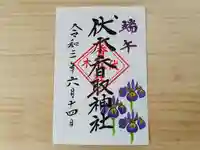 端午
伏木香取神社
令和二年六月十四日